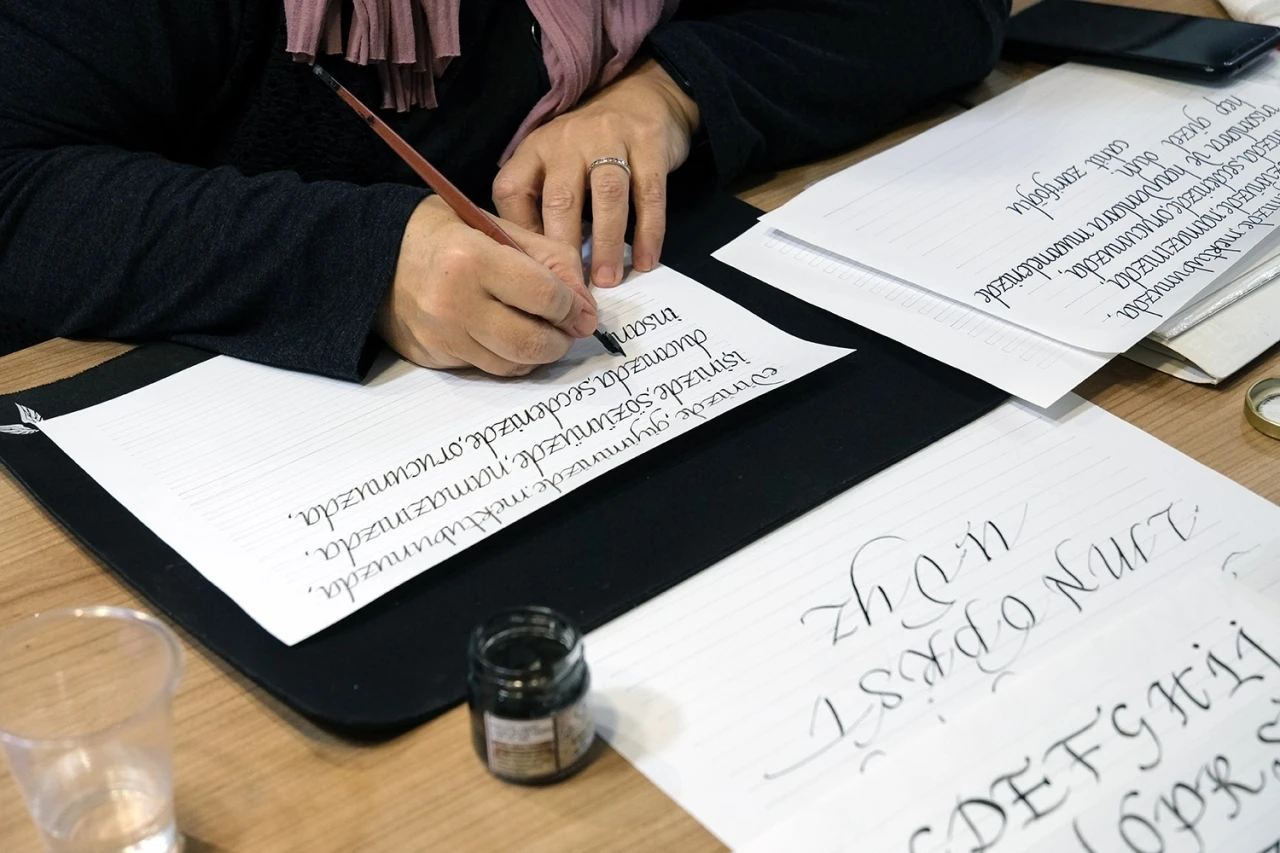 Evinizde, giyiminizde, mektubunuzda,
işinizde, sözünüzde, namazınızda,
duanızda, secdenizde, orucunuzda,
insan
mektubunuzda,
namazınızda,
secdenizde, orucunuzda,
insanlara ve hayvanlara muamelenizde
hep güzel olun
cahit zarifoğlu
L M N
P R S T
Y Z
D E F G H I İ
P R S